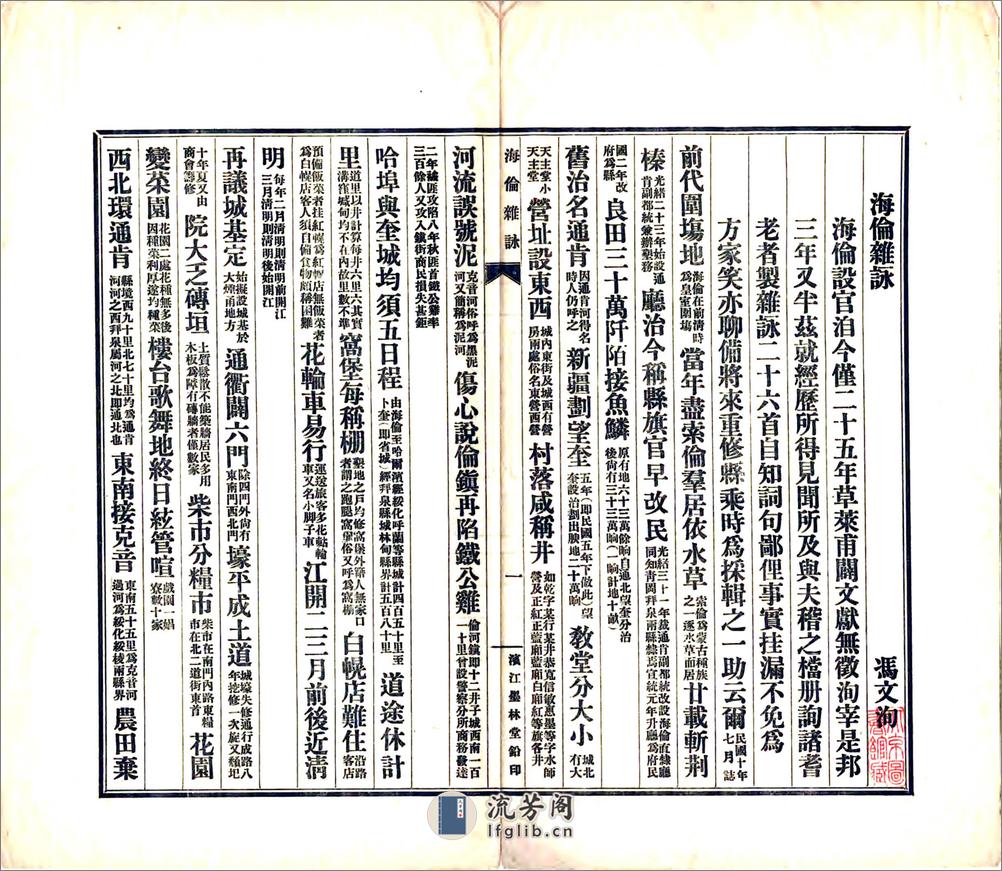 海倫雜詠 馮文洵
海倫設官洎今僅二十五年草萊甫闢文獻無徵洵宰是邦
三年又半茲就經歷所得見聞所及與夫稽之檔册詢諸耆
老者製雜詠二十六首自知詞句鄙俚事實挂漏不免為
方家笑亦聊備將來重修縣乘時為採輯之一助云爾民國十年七月誌
前代圍場地海倫在前清時為皇室圍場當年盡索倫羣居依水草索倫為蒙古種族之一逐水草而居廿載斬荆
榛光緒二十三年始設通肯副都統兼辦墾務廳治今稱縣旗官早改民光緒三十一年裁通肯副都統改設海倫直隸廳同知青岡拜泉兩縣隸焉宣統元年升廳為府民
國二年改府為縣良田三十萬阡陌接魚鱗原有地六十三萬餘晌自通北望奎分治後尙有三十三萬晌(一晌計地十畝)
舊治名通肯因通肯河得名時人仍呼之新疆劃望奎五年(即民國五年下倣此)望奎設治劃出腴地二十萬晌教堂分大小城北有大
天主堂小天主堂營址設東西城內東街及城西有營房兩處俗名東營西營村落咸稱井如乾字某行某井恭寬信敏惠墨等字水師營及正紅正藍廂藍廂白廂紅等旗各井
河流誤號泥克音河俗呼為墨泥河又簡稱為泥河傷心說倫鎮再陷鐵公雞倫河鎮即十二井子城西南一百一十里曾設警察分所商務發達
二年秋匪攻陷八年秋匪首鐵公雞率三百餘人又攻入鎮街商民損失甚鉅
海倫雜詠 一 濱江墨林堂鉛印
哈埠與奎城均須五日程由海倫至哈爾濱經綏化呼蘭等縣城計四百五十里至卜奎(即省城)經拜泉縣城林甸縣界計五百八十里道途休計
里道里以井計算每井六里六其實溝窪鹹甸均不在內故里數不準窩堡每稱棚墾地之戶均修窩堡外籍人無家口者謂之跑腿窩堡俗又呼為窩棚白幌店難住沿路客店
預備飯菜者挂紅幌為紅幌店無飯菜者為白幌店客人須自備食物頗稱困難花輪車易行運送旅客多花軲輪車又名小脚子車江開二三月前後近淸
明每年二月清明則清明前開江三月清明則清明後始開江
再議城基定始擬設城基於大煙甬地方通衢闢六門除四門外尙有東南門西北門壕平成土道城壕失修通行成路八年挖修一次旋又頹圮
十年夏又由商會籌修院大乏磚垣土質鬆散不能築牆居民多用木板為障有磚牆者僅數家柴市分糧市柴市在南門內路東糧市在北二道街東首花園
變菜園花園二處花種無多後因種菜利厚遂均種菜樓台歌舞地終日絃管喧戲園一娼寮數十家
西北環通肯縣境西九十里北七十里均為通肯河河之西拜泉屬河之北即通北也東南接克音東南五十五里為克音河過河為綏化綏棱兩縣界農田棄
流芳阁
lfglib.cn